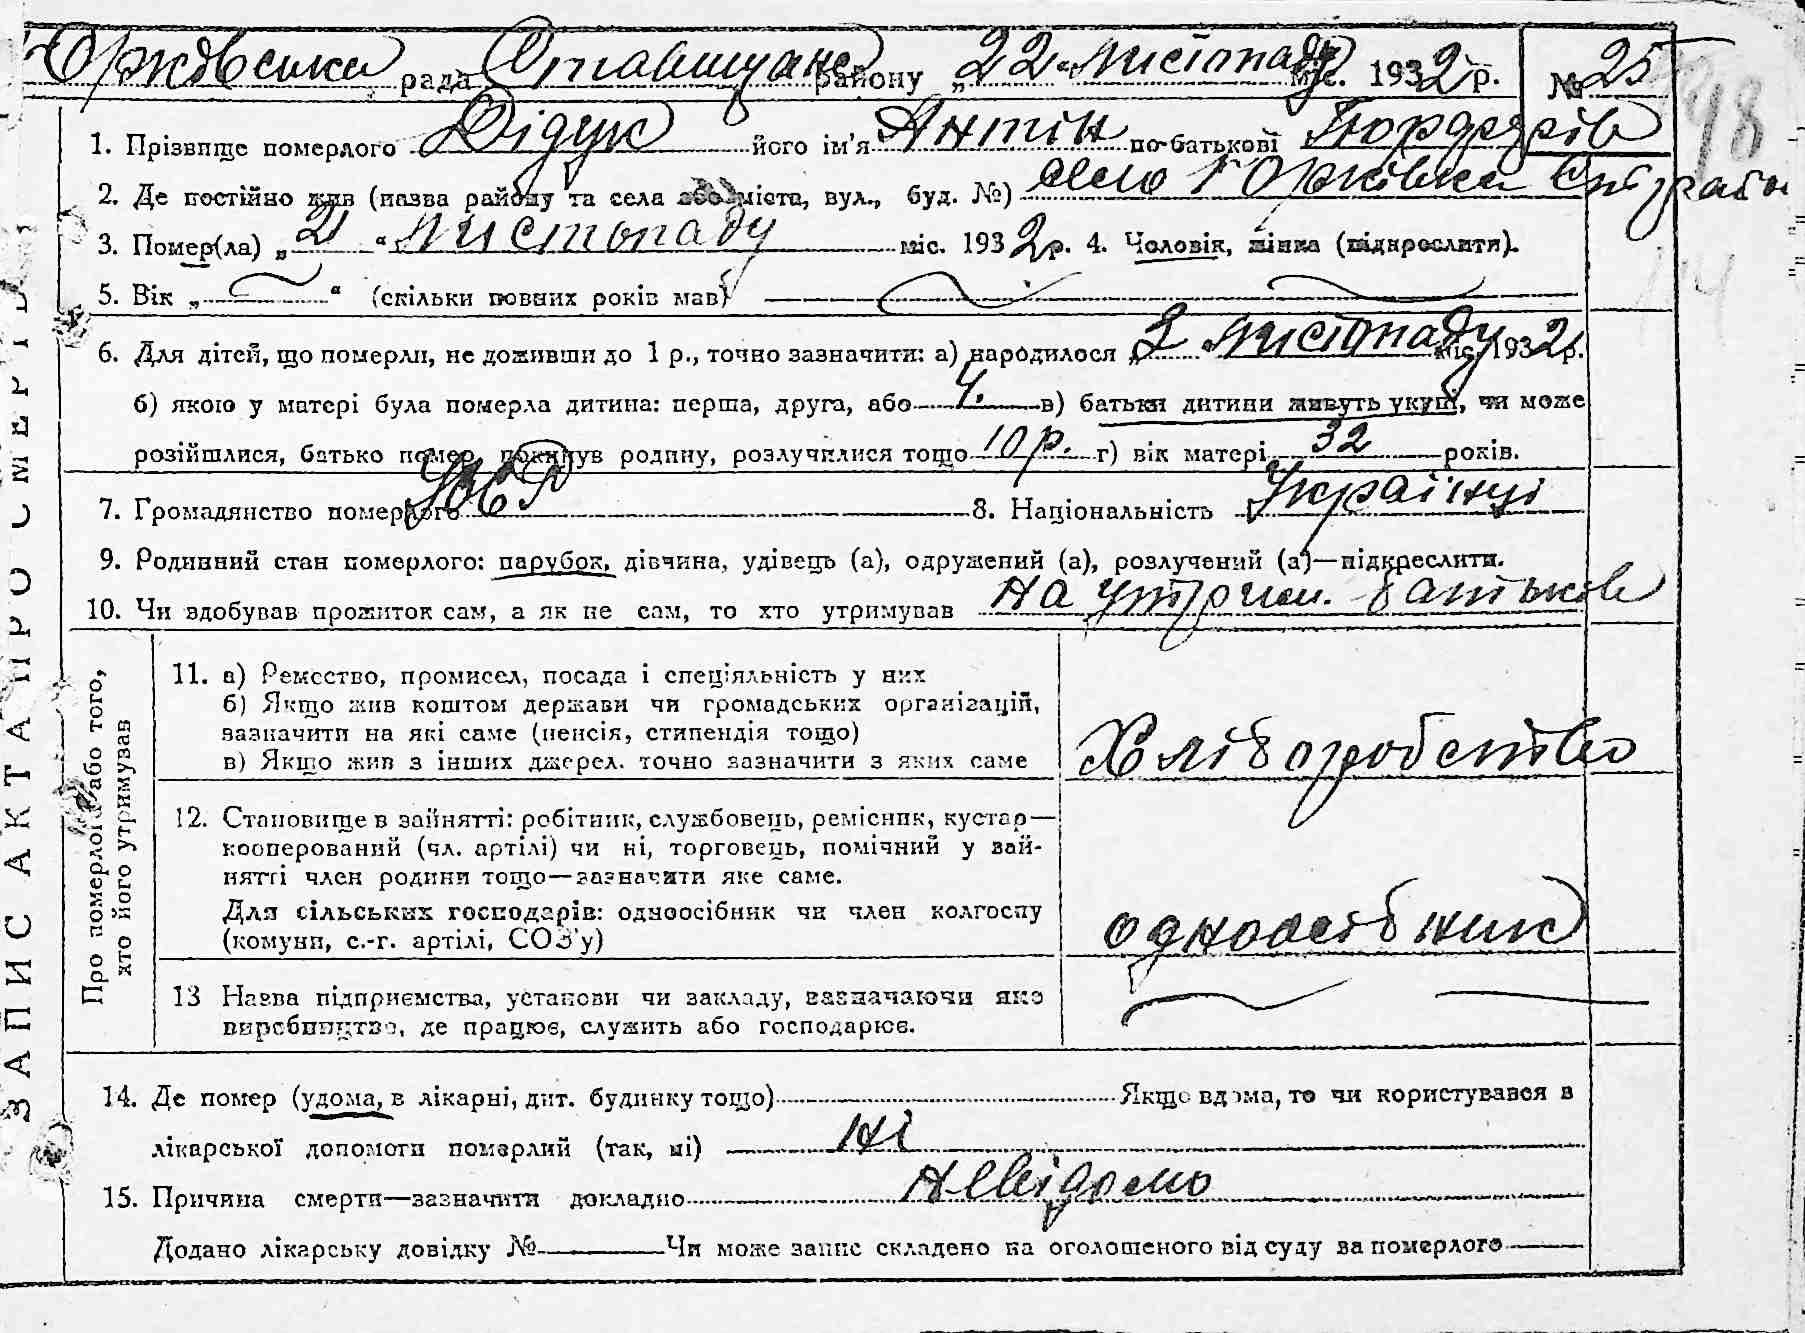 рада Ставищанс району „22" листопаду міс. 1932 р. № 25
98
1. Прізвище померлого Дідук його ім'я Антін по-батькові
2. Де постійно жив (назва району та села або міста, вул., буд. №) село Юрківка Ст района
3. Помер(ла) „21" листопаду міс. 1932 р. 4. Чоловік, жінка (підкреслити).
5. Вік „ " (скільки повних років мав)
6. Для дітей, що померли, не доживши до 1 р., точно зазначити: а) народилося „2 листопаду міс. 1932 р.
б) якою у матері була померла дитина: перша, друга, або 4. в) батьки дитини живуть укупі, чи може
розійшлися, батько помер, покинув родину, розлучилися тощо 10 р. г) вік матері 32 років.
7. Громадянство померлого 8. Національність Українці
9. Родинний стан померлого: парубок, дівчина, удівець (а), одружений (а), розлучений (а)—підкреслити.
10. Чи здобував прожиток сам, а як не сам, то хто утримував на утрим. батьків
ЗАПИС АКТА ПРО СМЕРТЬ
Про померлого або того,
хто його утримував
11. а) Ремество, промисел, посада і спеціяльність у них
б) Якщо жив коштом держави чи громадських організацій,
зазначити на які саме (пенсія, стипендія тощо)
в) Якщо жив з інших джерел. точно зазначити з яких саме
Хліборобство
12. Становище в зайнятті: робітник, службовець, ремісник, кустар—
кооперований (чл. артілі) чи ні, торговець, помічний у зай-
нятті член родини тощо—зазначити яке саме.
Для сільських господарів: одноосібник чи член колгоспу
(комуни, с.-г. артілі, СОЗ'у)
одноосібник
13 Назва підприємства, установи чи закладу, зазначаючи яке
виробництво, де працює, служить або господарює.
14. Де помер (удома, в лікарні, дит. будинку тощо) Якщо вдома, то чи користувався в
лікарської допомоги померлий (так, ні) ні
15. Причина смерти—зазначити докладно невідомо
Додано лікарську довідку № Чи може запис складено на оголошеного від суду за померлого